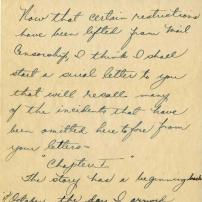 Now that certain restrictions
have been lifted from Mail
Censorship, I think I shall
start a serial letter to you
that will recall many
of the incidents that have
been omitted here to fore from
your letters—
"Chapter I"
The story has a beginning back
October the day I arrived